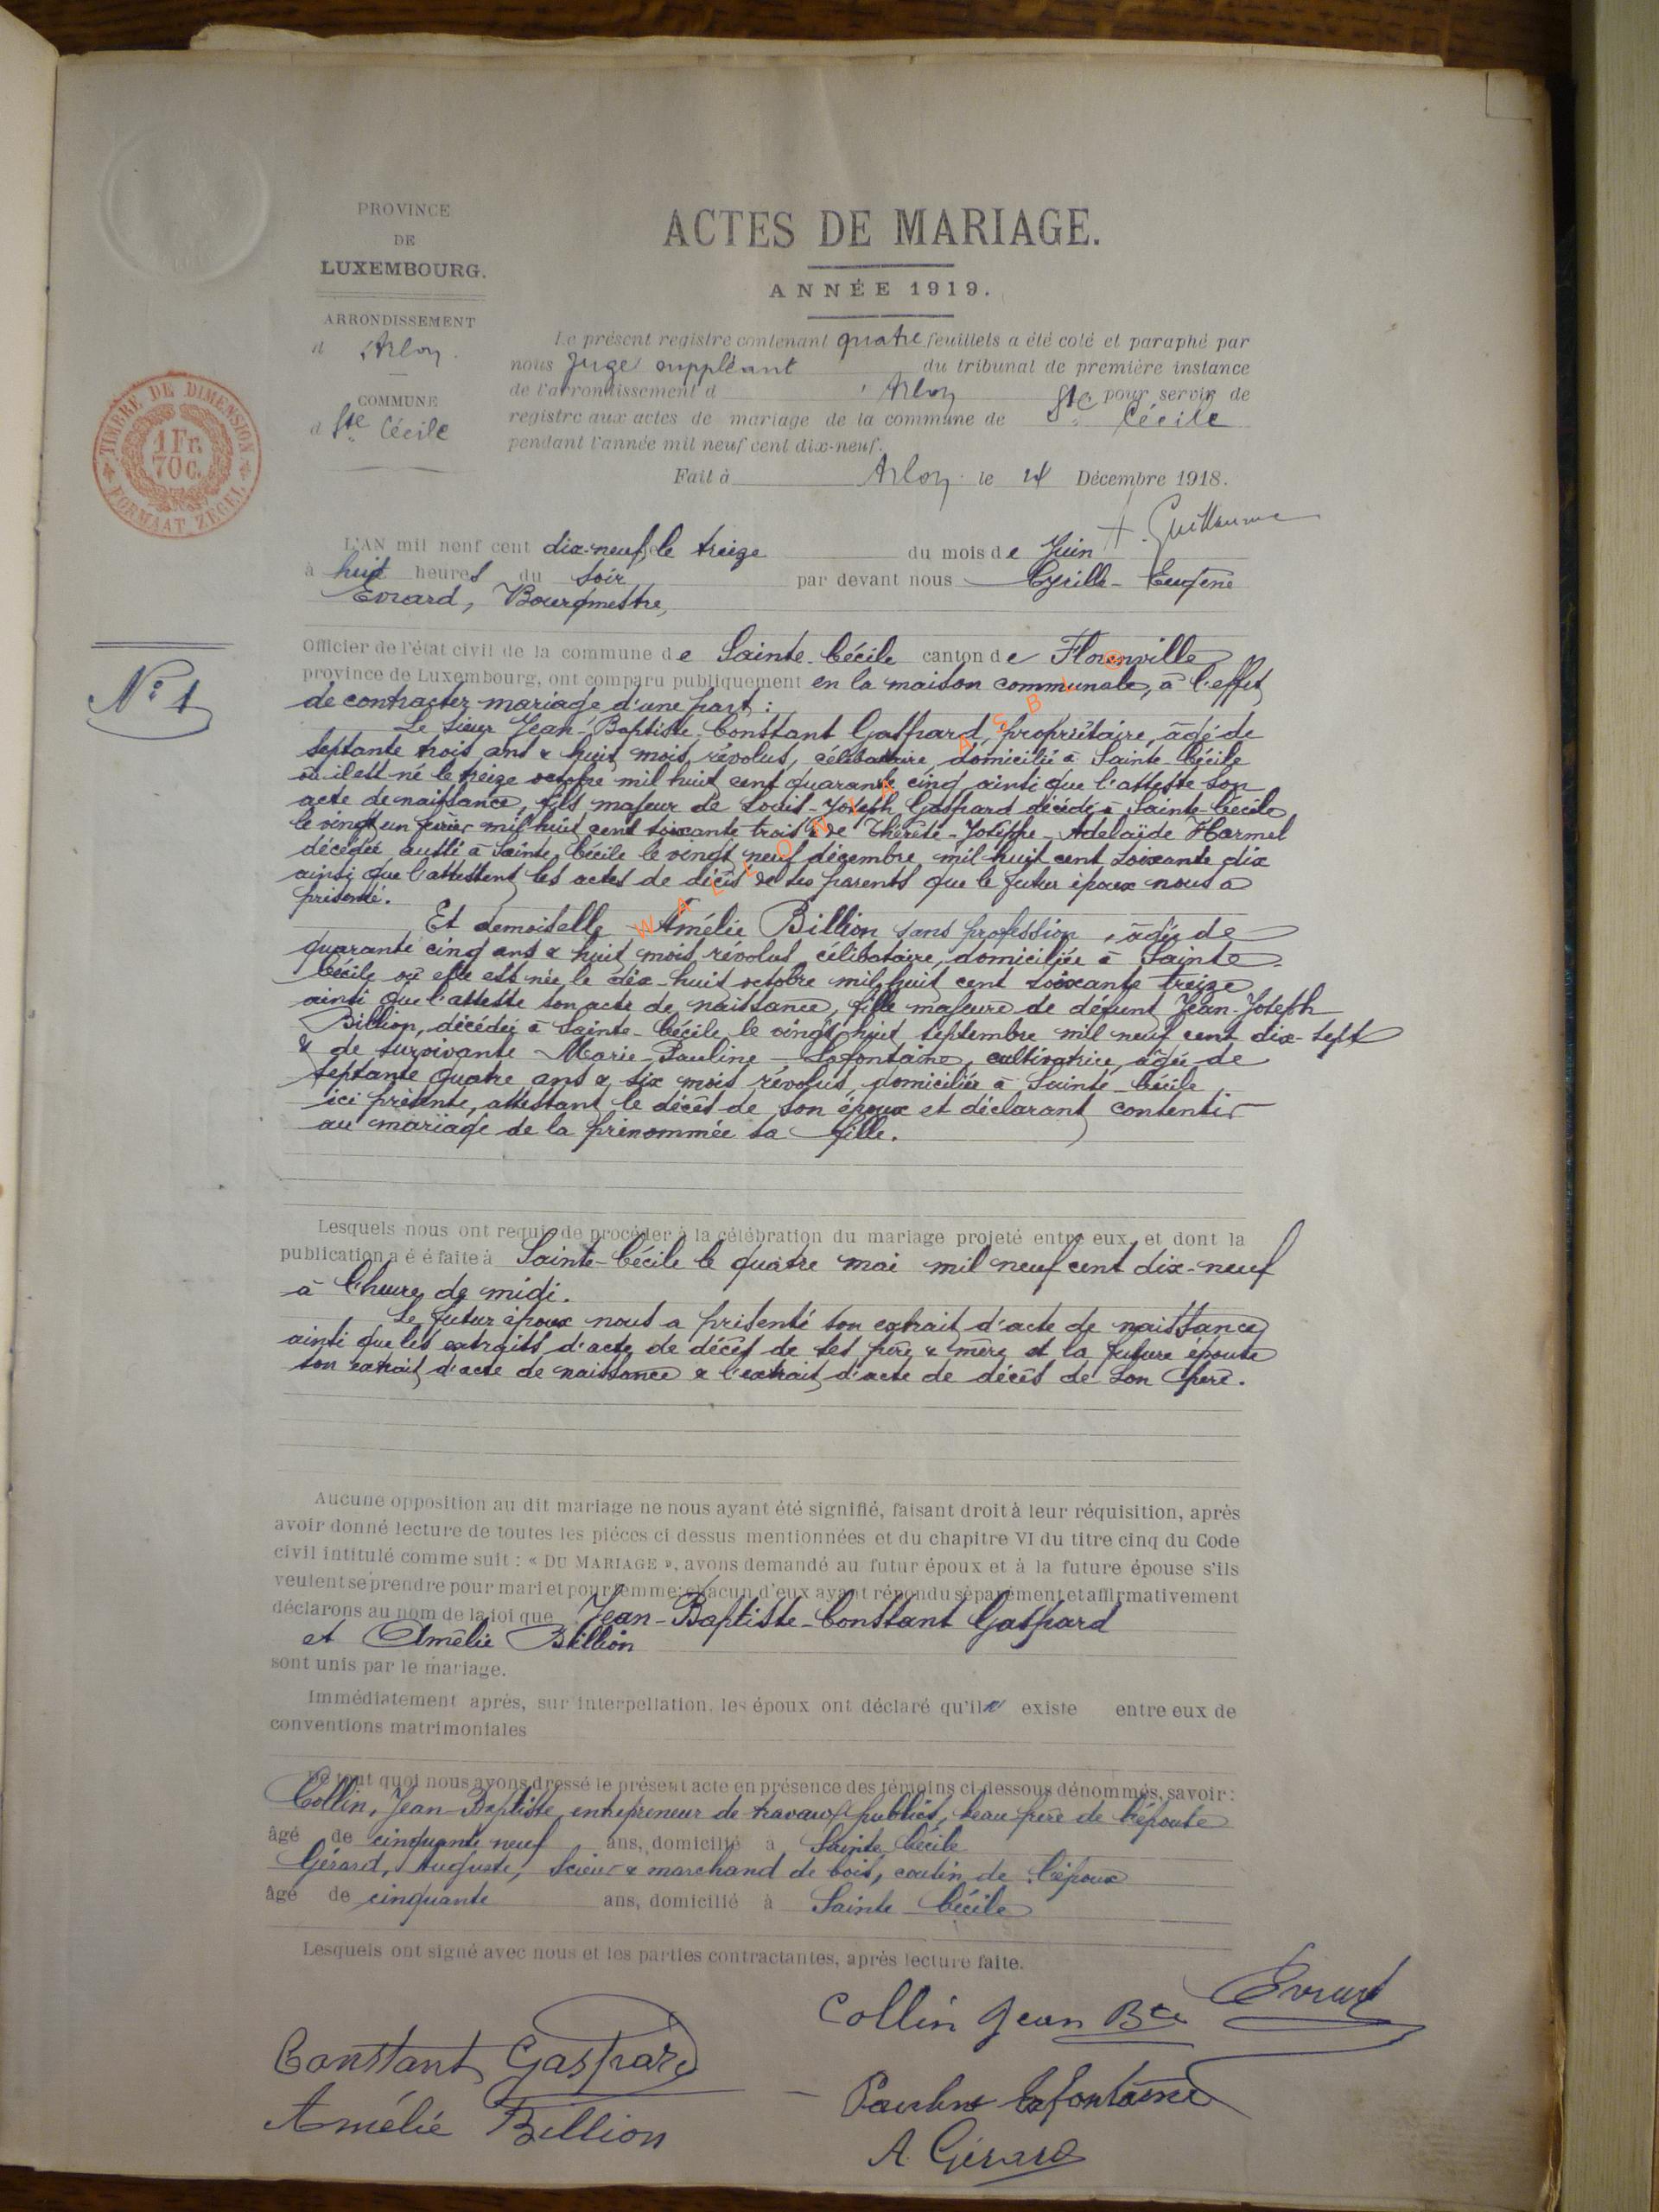 PROVINCE
DE
LUXEMBOURG.
ARRONDISSEMENT
d'Arlon.
COMMUNE
d Ste Cécile
TIMBRE DE DIMENSION
1 Fr.
70 c.
FORMAAT ZEGEL
ACTES DE MARIAGE.
ANNÉE 1919.
Le présent registre contenant quatre feuillets a été coté et paraphé par
nous Juge suppléant du tribunal de première instance
de l'arrondissement d'Arlon pour servir de
registre aux actes de mariage de la commune de Ste Cécile
pendant l'année mil neuf cent dix-neuf.
Fait à Arlon le Décembre 1918.
Guillaume
N° 1
L'AN mil neuf cent dix-neuf, le treize du mois de Juin
à huit heures du soir par devant nous Cyrille-Eugène
Evrard, Bourgmestre,
Officier de l'état civil de la commune de Sainte-Cécile canton de Florenville
province de Luxembourg, ont comparu publiquement en la maison communale, à l'effet
de contracter mariage d'une part :
Le sieur Jean-Baptiste-Constant Gaspard, propriétaire, âgé de
septante trois ans & huit mois révolus, célibataire, domicilié à Sainte-Cécile
où il est né le treize octobre mil huit cent quarante cinq ainsi que l'atteste son
acte de naissance, fils majeur de Louis-Joseph Gaspard décédé à Sainte-Cécile
le vingt un février mil huit cent soixante trois & de Thérèse-Josèphe-Adelaïde Harmel
décédée aussi à Sainte-Cécile le vingt neuf décembre mil huit cent soixante dix
ainsi que l'attestent les actes de décès de ses parents que le futur époux nous a
présenté.
Et demoiselle Amélie Billion sans profession, âgée de
quarante cinq ans & huit mois révolus, célibataire, domiciliée à Sainte-
Cécile où elle est née le dix-huit octobre mil huit cent soixante treize
ainsi que l'atteste son acte de naissance, fille majeure de défunt Jean-Joseph
Billion, décédé à Sainte-Cécile le vingt huit septembre mil neuf cent dix-sept
& de survivante Marie-Pauline Lafontaine, cultivatrice, âgée de
septante quatre ans & six mois révolus, domiciliée à Sainte-Cécile,
ici présente, attestant le décès de son époux et déclarant consentir
au mariage de la prénommée sa fille.
Lesquels nous ont requis de procéder à la célébration du mariage projeté entre eux, et dont la
publication a é é faite à Sainte-Cécile le quatre mai mil neuf cent dix-neuf
à l'heure de midi.
Le futur époux nous a présenté son extrait d'acte de naissance
ainsi que les extraits d'acte de décès de ses père & mère et la future épouse
son extrait d'acte de naissance & l'extrait d'acte de décès de son père.
Aucune opposition au dit mariage ne nous ayant été signifié, faisant droit à leur réquisition, après
avoir donné lecture de toutes les pièces ci dessus mentionnées et du chapitre VI du titre cinq du Code
civil intitulé comme suit : « DU MARIAGE », avons demandé au futur époux et à la future épouse s'ils
veulent se prendre pour mari et pour femme; chacun d'eux ayant répondu séparément et affirmativement
déclarons au nom de la loi que Jean-Baptiste-Constant Gaspard
et Amélie Billion
sont unis par le mariage.
Immédiatement après, sur interpellation, les époux ont déclaré qu'il n' existe entre eux de
conventions matrimoniales
De tout quoi nous avons dressé le présent acte en présence des témoins ci-dessous dénommés, savoir :
Collin, Jean-Baptiste, entrepreneur de travaux publics, beau-frère de l'épouse
âgé de cinquante neuf ans, domicilié à Sainte Cécile
Gérard, Auguste, scieur & marchand de bois, cousin de l'époux
âgé de cinquante ans, domicilié à Sainte-Cécile
Lesquels ont signé avec nous et les parties contractantes, après lecture faite.
Collin Jean Bte Evrard
Constant Gaspard
Pauline Lafontaine
Amélie Billion
A. Gérard